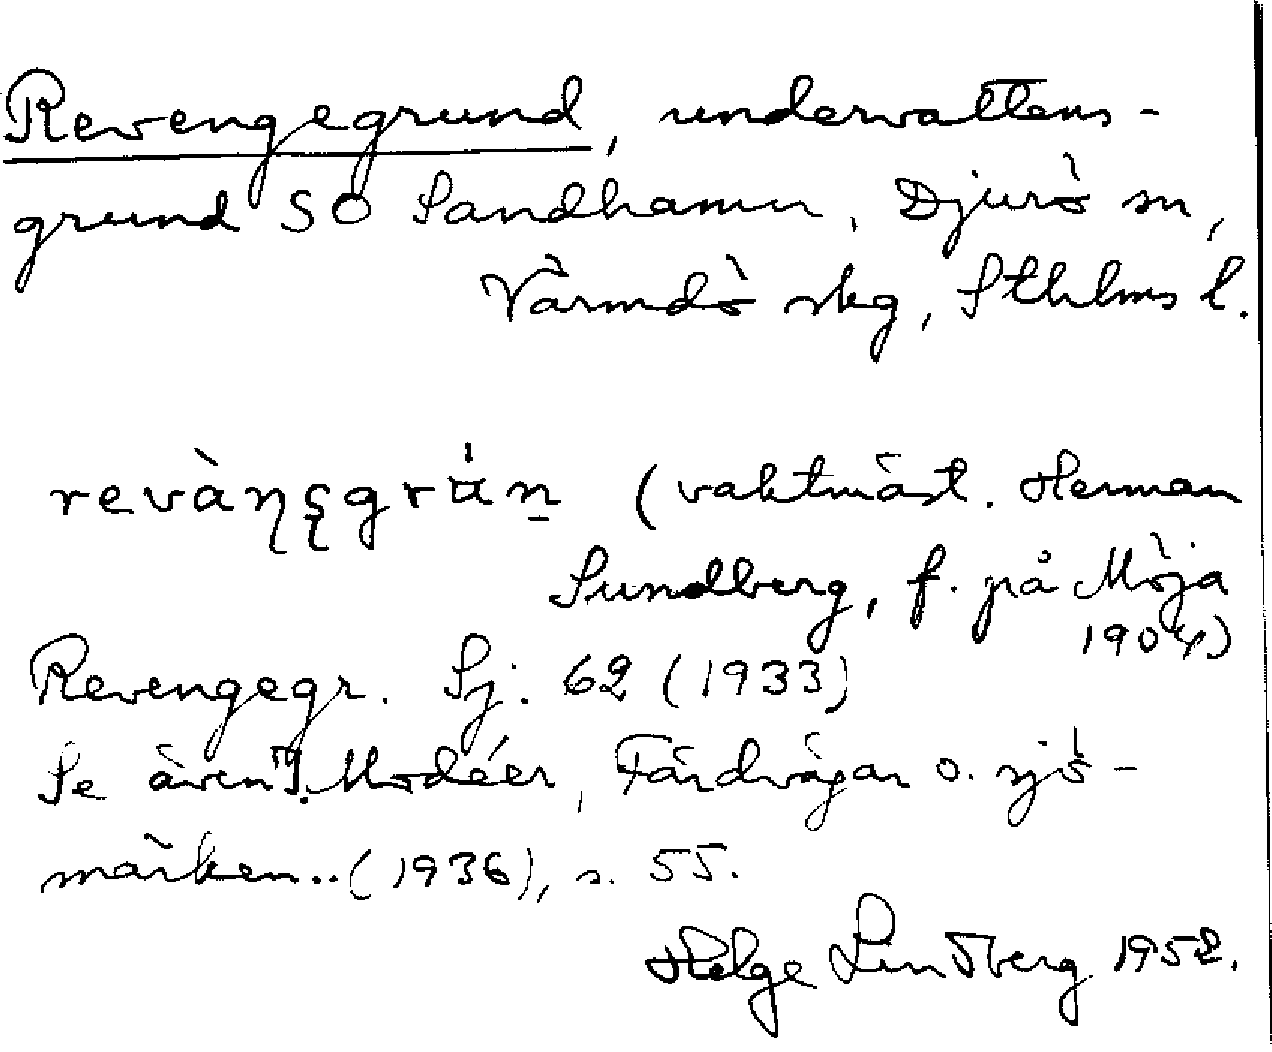 Revengegrund, undervattens-
grund SO Sandhamn, Djurö sn,
Värmdö skg, Sthlms l.
revàŋςgrún (vaktmäst. Herman
Sundberg, f. på Möja
1904)
Revengegr. Sj. 62 (1933)
Se även I. Modéer, Färdvägar o. sjö-
märken..(1936), s. 55.
Helge Lindberg 1952.